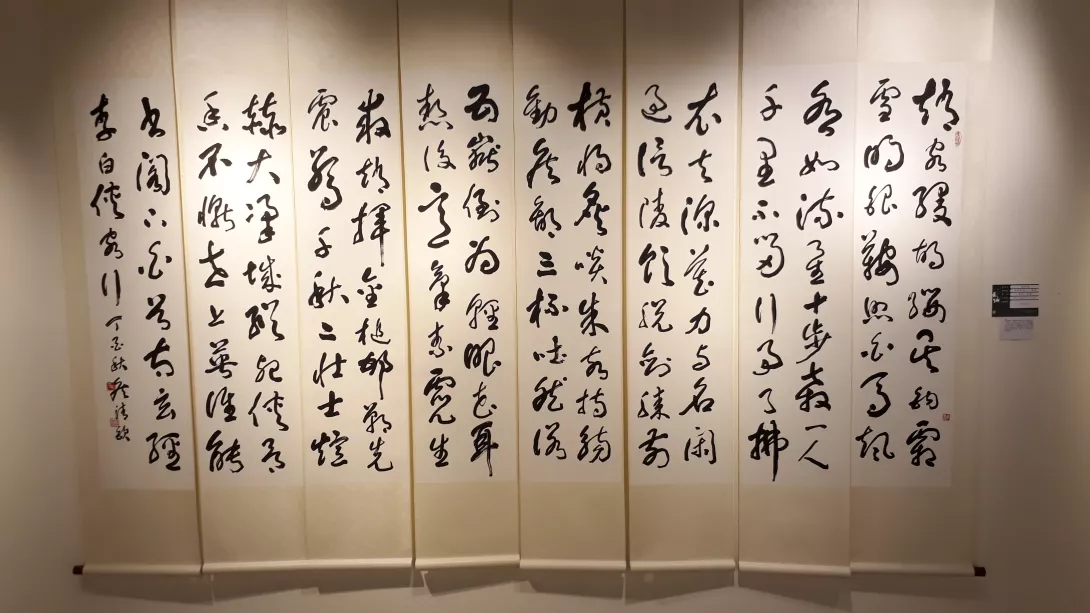 趙客縵胡纓吳鉤霜
雪明銀鞍照白馬颯
沓如流星十步殺一人
千里不留行事了拂
衣去深藏身与名閑
過信陵飲脫劍膝前
橫將炙啖朱亥持觴
勸侯嬴三杯吐然諾
五嶽倒為輕眼花耳
熱後意氣素霓生
救趙揮金槌邯鄲先
震驚千秋二壯士烜
赫大梁城縱死俠骨
香不慚世上英誰能
書閣下白首太玄經
李白俠客行 丁酉秋